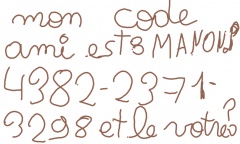 mon code
ami est 3 MANON8
4382-2371-
3298 et le votre?